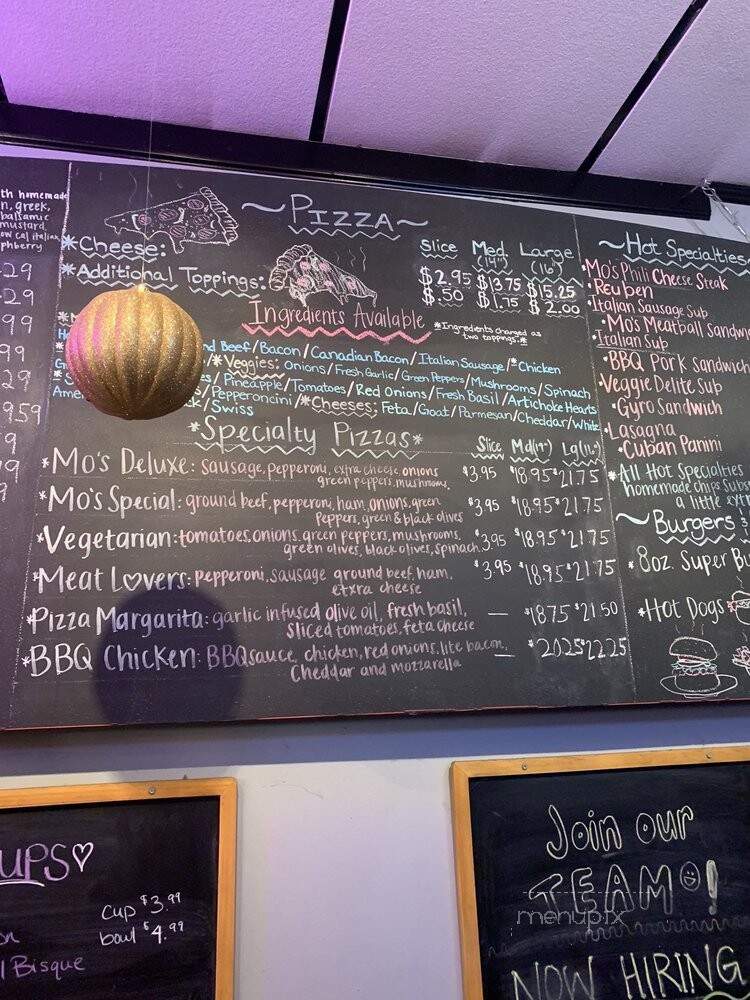 th homemade
n, greek,
balsamic
mustard
ow cal italian
phberry
29
29
99
99
29
9.59
9
9
9
~PIZZA~
Slice Med. (14") Large (16")
*Cheese: $2.95 $13.75 $15.25
*Additional Toppings: $.50 $1.75 $2.00
Ingredients Available
*Ingredients charged as
two toppings*
nd Beef/Bacon/Canadian Bacon/Italian Sausage/*Chicken
*Veggies: Onions/Fresh Garlic/Green Peppers/Mushrooms/Spinach
/Pineapple/Tomatoes/Red Onions/Fresh Basil/Artichoke Hearts
Pepperoncini/*Cheeses: Feta/Goat/Parmesan/Cheddar/White
Ame
/Swiss
*Specialty Pizzas*
Slice Md(14") Lg(16")
*Mo's Deluxe: sausage, pepperoni, extra cheese, onions $3.95 $18.95 $21.75
green peppers, mushrooms,
*Mo's Special: ground beef, pepperoni, ham, onions, green $3.95 $18.95 $21.75
peppers, green & black olives
*Vegetarian: tomatoes, onions, green peppers, mushrooms, $3.95 $18.95 $21.75
green olives, black olives, spinach
*Meat Lovers: pepperoni, sausage ground beef, ham, $3.95 $18.95 $21.75
etxra cheese
*Pizza Margarita: garlic infused olive oil, fresh basil, — $18.75 $21.50
sliced tomatoes, feta cheese
*BBQ Chicken: BBQ sauce, chicken, red onions, lite bacon, — $20.25 $22.25
Cheddar and mozzarella
~Hot Specialties
*Mo's Phili Cheese Steak
*Reuben
*Italian Sausage Sub
*Mo's Meatball Sandwi
*Italian Sub
*BBQ Pork Sandwich
*Veggie Delite Sub
*Gyro Sandwich
*Lasagna
*Cuban Panini
*All Hot Specialties
homemade chips Subst
a little ext
~Burgers
*8oz. Super Bu
*Hot Dogs
UPS♡
cup $3.99
bowl $4.99
on
l Bisque
Join our
TEAM☺!
NOW HIRING
menupix